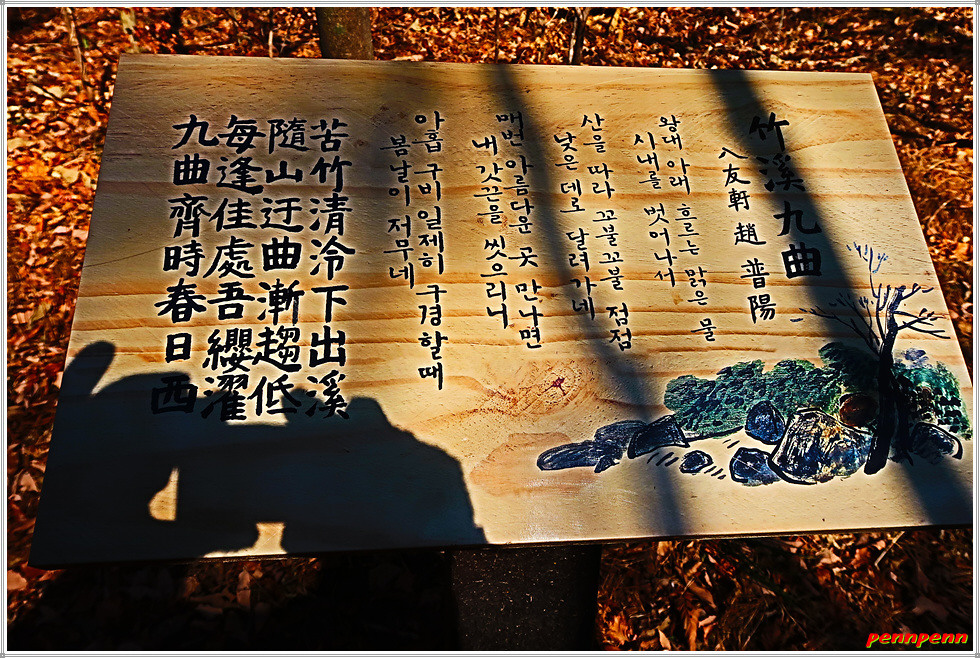 竹溪九曲
八友軒 趙 普陽
왕대 아래 흐르는 맑은 물
시내를 벗어나서
산을 따라 꼬불꼬불 점점
낮은 데로 달려가네
매번 아름다운 곳 만나면
내 갓끈을 씻으리니
아홉 구비 일제히 구경할 때
봄날이 저무네
苦竹清泠下出溪
隨山迂曲漸趨低
每逢佳處吾纓濯
九曲齊時春日西
pennpenn